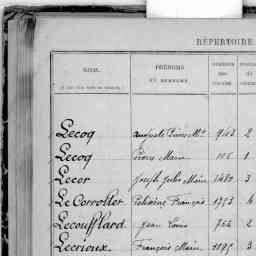 RÉPERTOIRE
NOMS. PRÉNOMS
ET SURNOMS
Lecoq auguste Pierre M. 943 2
Lecoq Pierre Marie 106 1
Lecor Joseph Jules Marie 1480 3
Le Corroller Polixène François 1793 4
Lecoufflard Jean Louis 766 2
Lecrioux François Marie 1195 3